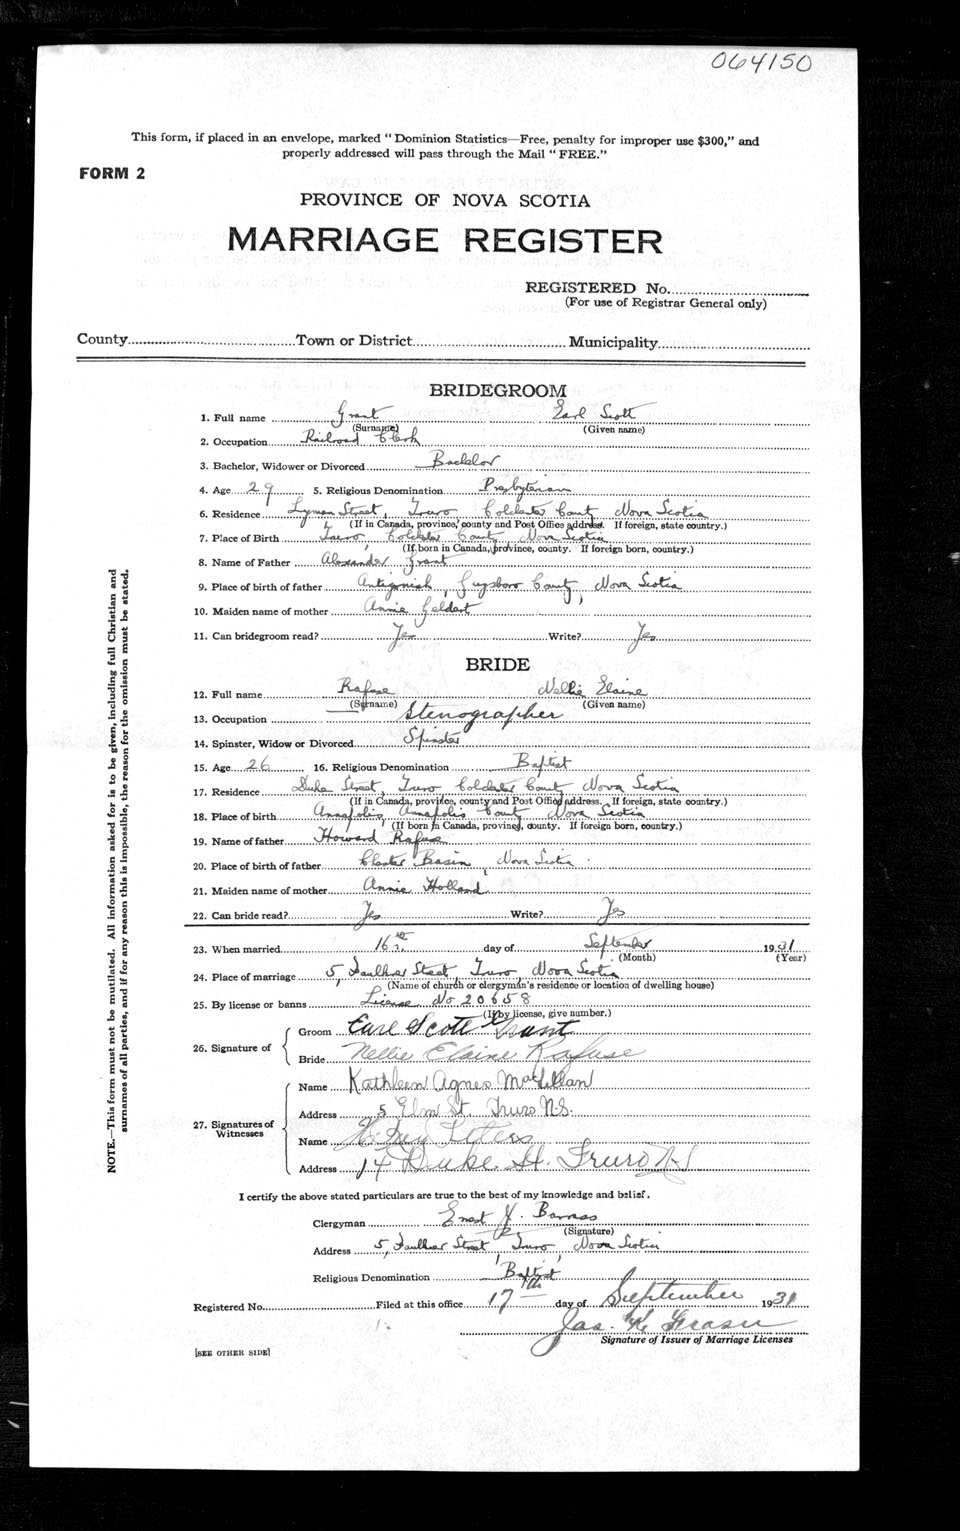 064150
This form, if placed in an envelope, marked "Dominion Statistics—Free, penalty for improper use $300," and
properly addressed will pass through the Mail "FREE."
FORM 2
PROVINCE OF NOVA SCOTIA
MARRIAGE REGISTER
REGISTERED No.
(For use of Registrar General only)
County Town or District Municipality
BRIDEGROOM
1. Full name Grant Earl Scott
(Surname) (Given name)
2. Occupation Railroad Clerk
3. Bachelor, Widower or Divorced Bachelor
4. Age 29 5. Religious Denomination Presbyterian
6. Residence Lyman Street, Truro Colchester County Nova Scotia
(If in Canada, province, county and Post Office address. If foreign, state country.)
7. Place of Birth Truro, Colchester County, Nova Scotia
(If born in Canada, province, county. If foreign born, country.)
8. Name of Father Alexander Grant
9. Place of birth of father Antigonish, Guysboro County, Nova Scotia
10. Maiden name of mother Annie Geldert
11. Can bridegroom read? Yes Write? Yes
BRIDE
12. Full name Rafuse Nellie Elaine
(Surname) (Given name)
13. Occupation Stenographer
14. Spinster, Widow or Divorced Spinster
15. Age 26 16. Religious Denomination Baptist
17. Residence Duke Street, Truro Colchester County Nova Scotia
(If in Canada, province, county and Post Office address. If foreign, state country.)
18. Place of birth Annapolis, Annapolis County Nova Scotia
(If born in Canada, province, county. If foreign born, country.)
19. Name of father Howard Rafuse
20. Place of birth of father Chester Basin, Nova Scotia
21. Maiden name of mother Annie Holland
22. Can bride read? Yes Write? Yes
23. When married 16th day of September 1931
(Month) (Year)
24. Place of marriage 5, Faulkner Street, Truro, Nova Scotia
(Name of church or clergyman's residence or location of dwelling house)
25. By license or banns License No 20658
(If by license, give number.)
26. Signature of
Groom Earl Scott Grant
Bride Nellie Elaine Rafuse
27. Signatures of Witnesses
Name Kathleen Agnes MacLellan
Address 5 Elm St. Truro N.S.
Name Peters
Address 14 Duke St. Truro N.S
I certify the above stated particulars are true to the best of my knowledge and belief.
Clergyman Ernest Barrass
(Signature)
Address 5, Faulkner Street, Truro, Nova Scotia
Religious Denomination Baptist
Registered No. Filed at this office 17th day of September 1931
Jas. K Fraser
Signature of Issuer of Marriage Licenses
[SEE OTHER SIDE]
NOTE.—This form must not be mutilated. All information asked for is to be given, including full Christian and
surnames of all parties, and if for any reason this is impossible, the reason for the omission must be stated.